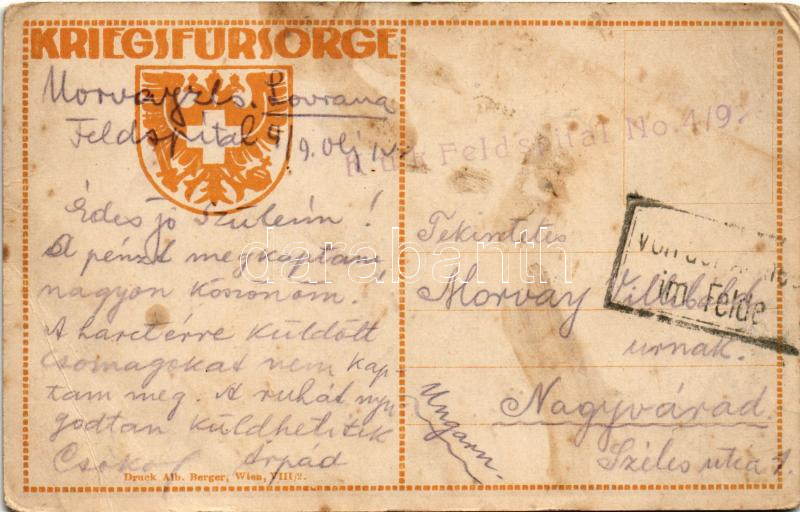 KRIEGSFÜRSORGE
Morvayzls. Lovrana
Feldspital 4/9.
Édes jó Szüleim!
A pénzt megkaptam
nagyon köszönöm!
A harctérre küldött
csomagokat nem kap-
tam meg. A ruhát nyu-
godtan küldhetitek
Csókol Árpád
Druck Alb. Berger, Wien, VIII/2.
K.u.k. Feldspital No. 4/9.
von der Armee
im Felde
Tekintetes
Morvay Villibald
urnak.
Nagyvárad
Széles utca 1.
Ungarn.
darabanth